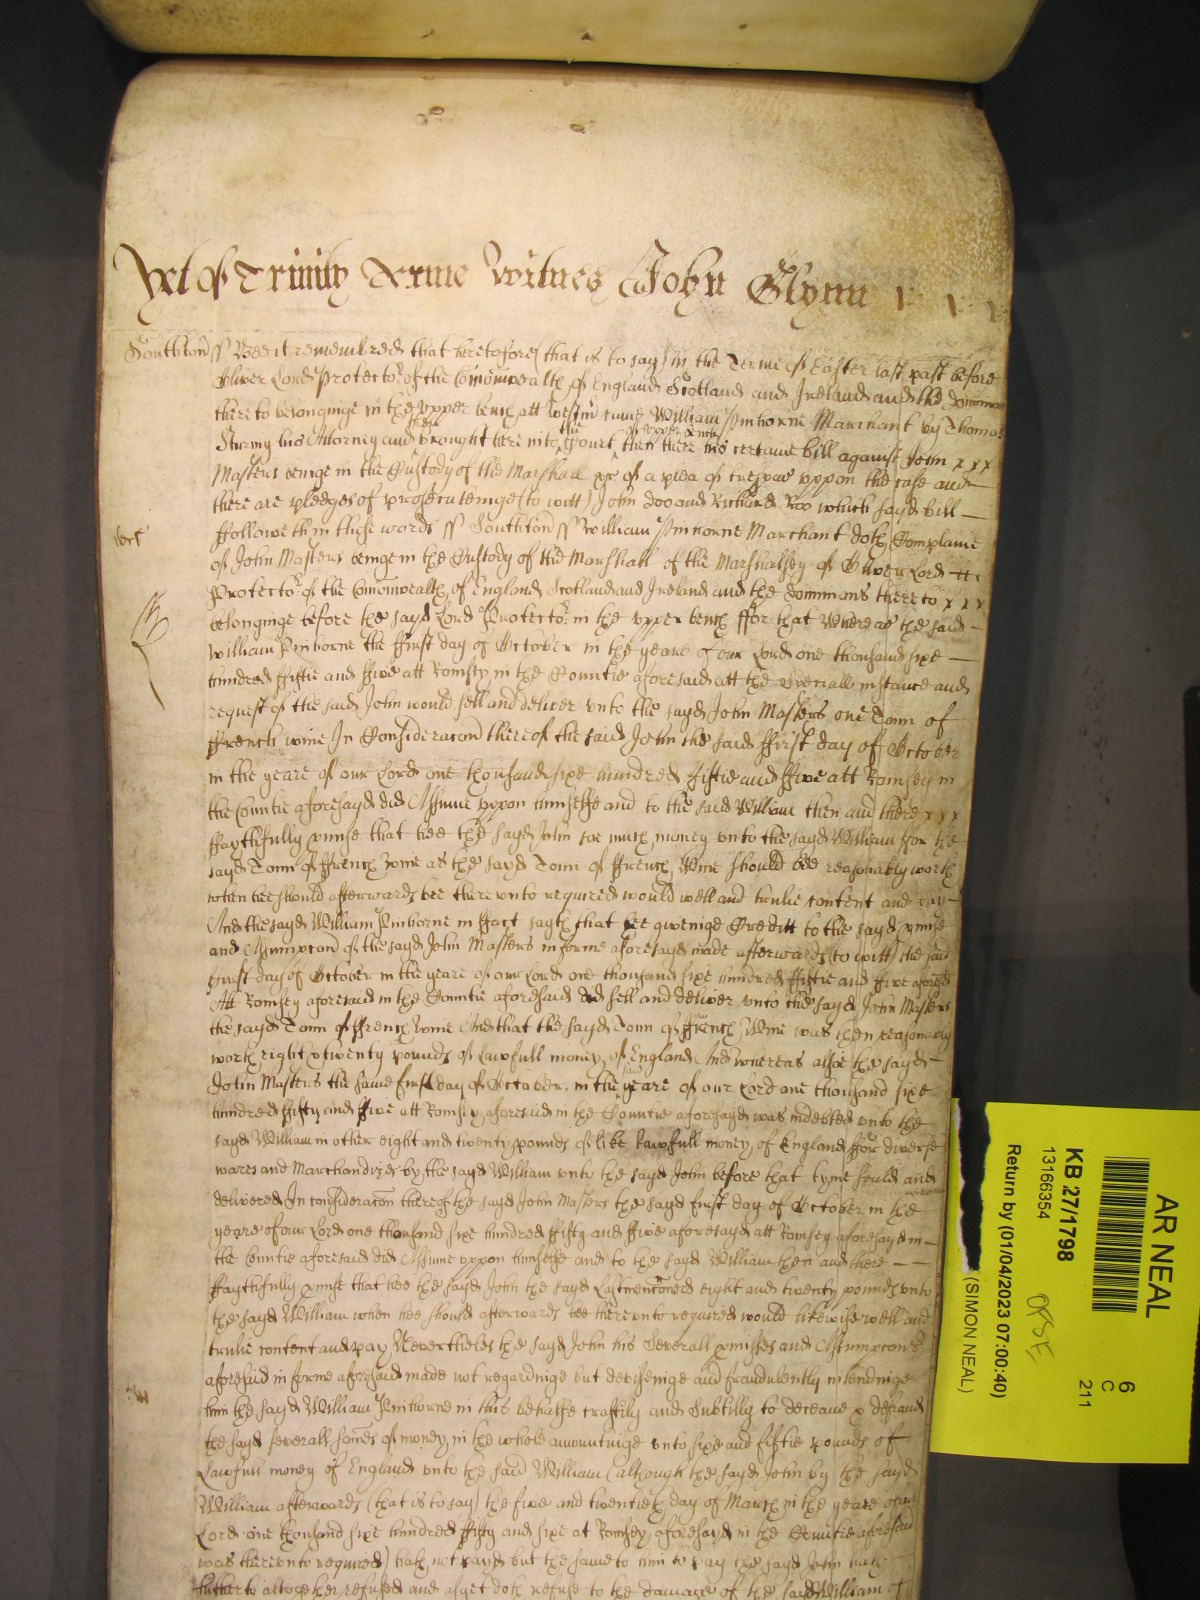 Yet of Trinity Terme Witnes John Glynn
Southton ss Bee it remembred that heretofore (that is to say) in the Terme of Easter last past before
Oliver Lord Protector of the Comonwealth of England Scotland and Ireland and the dominions
thereto belonginge in the upper bench att Westm came William Pinhorne Marchant by Thomas
Sturmy his Attorney and brought here into the Court then there his certaine bill against John x x x
Masters beinge in the Custody of the Marshall &c of a plea of trespas uppon the case and
there are pledges of prosecuteinge (to witt) John Doo and Richard Roo which sayd bill
ffolloweth in these words ss Southton ss William Pinhorne Marchant doth Complaine
of John Masters beinge in the Custody of the Marshall of the Marshalsey of Oliver Lord
Protector of the Comonwealth of England Scotland and Ireland and the dominions thereto x x x
belonginge before the sayd Lord Protector in the upper bench ffor that Whereas the said
William Pinhorne the ffirst day of October in the yeare of our Lord one thousand sixe
hundred ffiftie and ffive att Romsey in the Countie aforesaid att the speciall instance and
request of the said John would sell and deliver unto the sayd John Masters one Tonn of
ffrench wine In Consideracon thereof the said John the said ffirst day of October
in the yeare of our Lord one thousand sixe hundred fiftie and ffive att Romsey in
the Countie aforesayd did Assume uppon himselfe and to the said William then and there x x x
ffaythfully pmise that hee the sayd John soe much money unto the sayd William for the
sayd Tonn of ffrench Wine as the sayd Tonn of ffrench Wine should bee reasonably worth
when hee should afterwards bee thereunto required would well and trulie content and pay
And the sayd William Pinhorne in ffact sayth that hee giveinge Creditt to the sayd pmise
and Assumpcon of the sayd John Masters in forme aforesayd made afterwards (to witt) the said
first day of October in the yeare of our Lord one thousand sixe hundred ffiftie and ffive aforesd
Att Romsey aforesaid in the Countie aforesaid did sell and deliver unto the sayd John Masters
the sayd Tonn of ffrench Wine And that the sayd Tonn of ffrench Wine was then reasonably
worth eight & twenty pounds of Lawfull money of England And whereas alsoe the sayd
John Masters the same first day of October in the said yeare of our Lord one thousand sixe
hundred ffifty and ffive att Romsey aforesaid in the Countie aforesayd was indebted unto the
sayd William in other eight and twenty pounds of like Lawfull money of England ffor diverse
wares and Marchandizes by the sayd William unto the sayd John before that tyme sould and
delivered In consideracon thereof the sayd John Masters the sayd first day of October in the
yeare of our Lord one thousand sixe hundred ffifty and ffive aforesayd att Romsey aforesayd in
the Countie aforesaid did Assume uppon himselfe and to the sayd William then and there
ffaythfully pmise that hee the sayd John the sayd Lastmenconed eight and twenty pounds unto
the sayd William when hee should afterwards bee thereunto required would likewise well and
trulie content and pay Neverthelesse the sayd John his severall pmisses and Assumpcons
aforesaid in forme aforesaid made not regardinge but deviseinge and fraudulently intendinge
him the sayd William Pinhorne in this behalfe craftily and subtilly to deceave & defraud
the sayd severall somes of money in the whole amountinge unto sixe and fiftie pounds of
Lawfull money of England unto the said William (although the sayd John by the sayd
William afterwards (that is to say) the five and twentieth day of March in the yeare of our
Lord one thousand sixe hundred ffifty and sixe at Romsey aforesayd in the Countie aforesaid
was thereunto required) hath not payd but the same to him to pay the sayd John hath
hitherto altogether refused and as yet doth refuse to the damage of the sayd William of
AR NEAL
KB 27/1798
13166354
Return by (01/04/2023 07:00:40)
(SIMON NEAL)
6
C
211